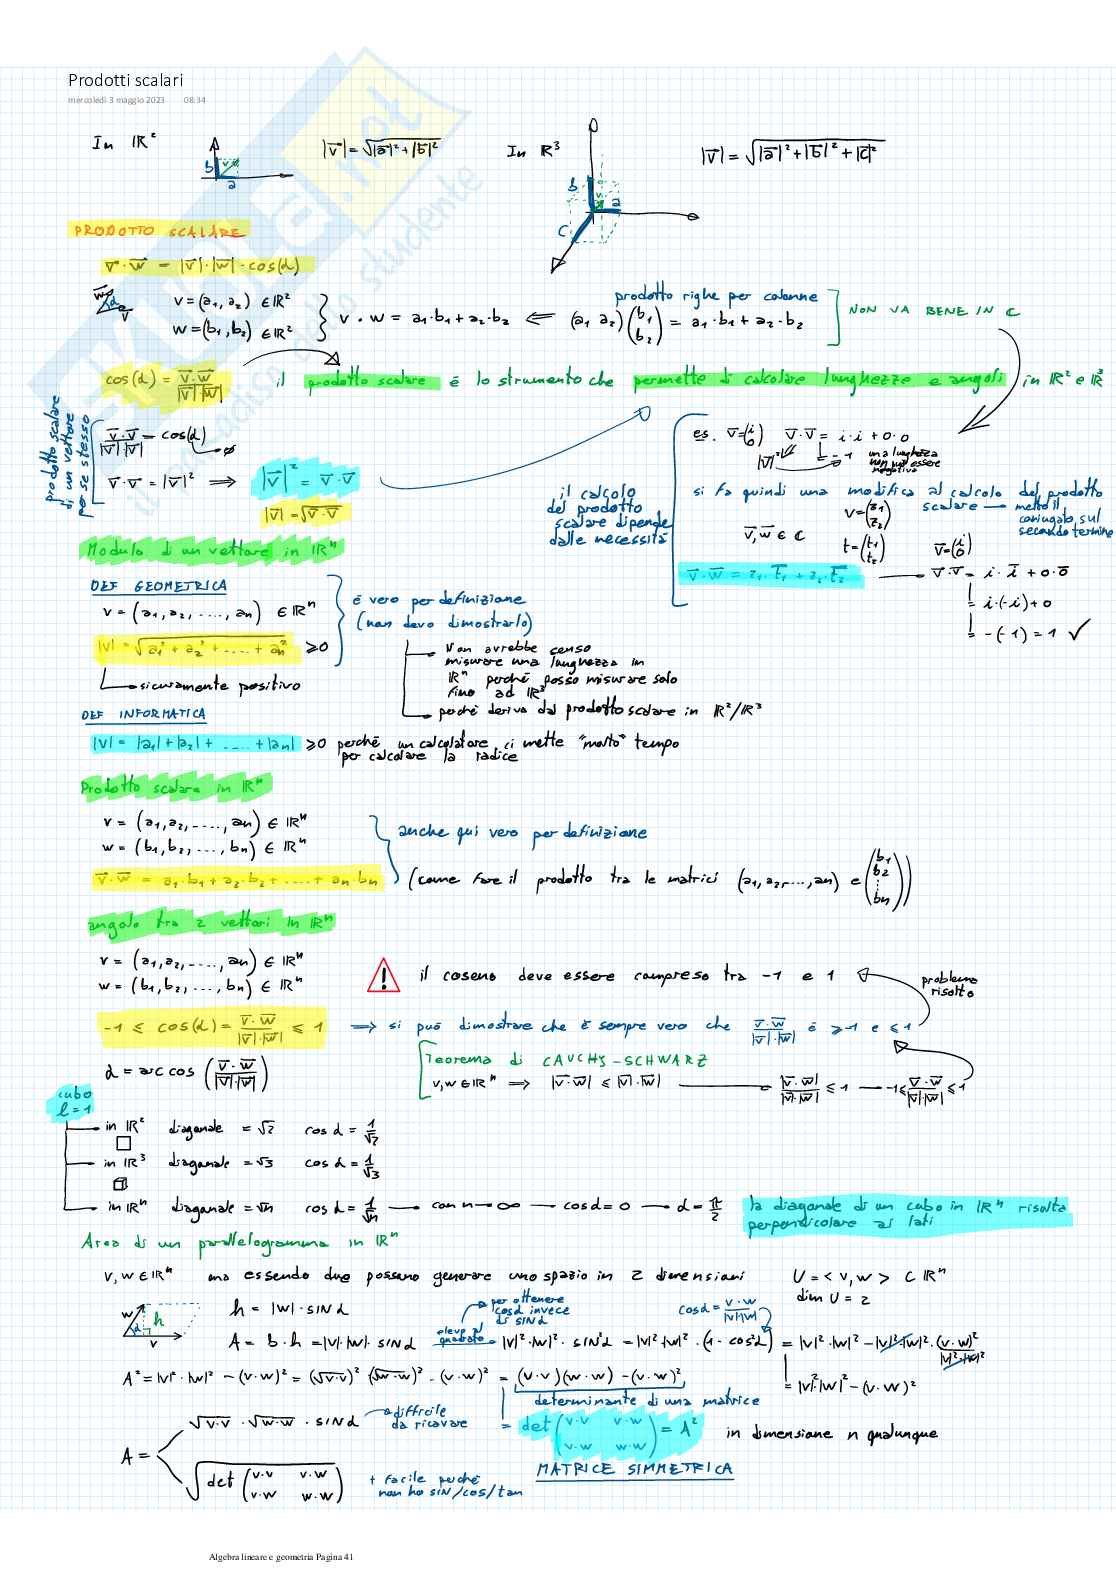 Prodotti scalari
mercoledì 3 maggio 2023 08:34
In ℝ²
b
v
a
|v⃗| = √|a⃗|² + |b⃗|²
In ℝ³
b
v
a
c
|v⃗| = √|a⃗|² + |b⃗|² + |c⃗|²
PRODOTTO SCALARE
v⃗ · w⃗ = |v⃗| · |w⃗| · cos(α)
w⃗
α
v
v = (a₁, a₂) ∈ ℝ²
w = (b₁, b₂) ∈ ℝ²
v · w = a₁·b₁ + a₂·b₂ ⇐ (a₁ a₂) (b₁ b₂) = a₁·b₁ + a₂·b₂
prodotto righe per colonne
NON VA BENE IN ℂ
cos(α) = v⃗·w⃗ / |v⃗|·|w⃗|
il prodotto scalare è lo strumento che permette di calcolare lunghezze e angoli in ℝ² e ℝ³
prodotto scalare
di un vettore
per se stesso
v⃗·v⃗ / |v⃗|·|v⃗| = cos(α)
ø
v⃗·v⃗ = |v⃗|² ⟹ |v⃗|² = v⃗·v⃗
|v⃗| = √v⃗·v⃗
il calcolo
del prodotto
scalare dipende
dalle necessità
es. v⃗ = (i 0) v⃗·v⃗ = i·i + 0·0
|v⃗|²
= -1
una lunghezza
non può essere
negativa
si fa quindi una modifica al calcolo del prodotto
scalare — metto il
coniugato sul
secondo termine
v⃗, w⃗ ∈ ℂ
v = (z₁ z₂)
t = (t₁ t₂)
v⃗ = (i 0)
v⃗·w⃗ = z₁·t̄₁ + z₂·t̄₂ — v⃗·v⃗ = i·ī + 0·0̄
= i·(-i) + 0
= -(-1) = 1 ✓
Modulo di un vettore in ℝⁿ
DEF GEOMETRICA
v = (a₁, a₂, ...., aₙ) ∈ ℝⁿ
|v| = √a₁² + a₂² + .... + aₙ² ≥ 0
sicuramente positivo
è vero per definizione
(non devo dimostrarlo)
Non avrebbe senso
misurare una lunghezza in
ℝⁿ perché posso misurare solo
fino ad ℝ³
perché deriva dal prodotto scalare in ℝ²/ℝ³
DEF INFORMATICA
|v| = |a₁| + |a₂| + .... + |aₙ| ≥ 0 perché un calcolatore ci mette "molto" tempo
per calcolare la radice
Prodotto scalare in ℝⁿ
v = (a₁, a₂, ....., aₙ) ∈ ℝⁿ
w = (b₁, b₂, ...., bₙ) ∈ ℝⁿ
v⃗·w⃗ = a₁·b₁ + a₂·b₂ + .... + aₙ·bₙ
anche qui vero per definizione
(come fare il prodotto tra le matrici (a₁, a₂, ..., aₙ) e (b₁ b₂ ⋮ bₙ))
angolo tra 2 vettori in ℝⁿ
v = (a₁, a₂, ....., aₙ) ∈ ℝⁿ
w = (b₁, b₂, ...., bₙ) ∈ ℝⁿ
! il coseno deve essere compreso tra -1 e 1
problema
risolto
-1 ≤ cos(α) = v⃗·w⃗ / |v⃗|·|w⃗| ≤ 1 ⟹ si può dimostrare che è sempre vero che v⃗·w⃗ / |v⃗|·|w⃗| è ≥ -1 e ≤ 1
Teorema di CAUCHY-SCHWARZ
v, w ∈ ℝⁿ ⟹ |v⃗·w⃗| ≤ |v⃗|·|w⃗| — |v⃗·w⃗| / |v⃗|·|w⃗| ≤ 1 — -1 ≤ v⃗·w⃗ / |v⃗|·|w⃗| ≤ 1
α = arccos (v⃗·w⃗ / |v⃗|·|w⃗|)
cubo
l = 1
in ℝ² diagonale = √2 cos α = 1/√2
in ℝ³ diagonale = √3 cos α = 1/√3
in ℝⁿ diagonale = √n cos α = 1/√n — con n → ∞ — cos α = 0 — α = π/2
la diagonale di un cubo in ℝⁿ risulta
perpendicolare ai lati
Area di un parallelogramma in ℝⁿ
v, w ∈ ℝⁿ ma essendo due possono generare uno spazio in 2 dimensioni U = <v, w> ⊂ ℝⁿ
dim U = 2
w
h
α
v
h = |w| · sin α
per ottenere
cos α invece
di sin α
cos α = v·w / |v|·|w|
A = b · h = |v|·|w| · sin α
elevo al
quadrato
= |v|²·|w|² · sin²α = |v|²·|w|² · (1 - cos²α) = |v|²·|w|² - |v|²·|w|² · (v·w)² / |v|²·|w|²
= |v|²·|w|² - (v·w)²
A² = |v|²·|w|² - (v·w)² = (√v·v)² (√w·w)² - (v·w)² = (v·v)(w·w) - (v·w)²
determinante di una matrice
= det (v·v v·w
v·w w·w) = A²
in dimensione n qualunque
MATRICE SIMMETRICA
A =
√v·v · √w·w · sin α
difficile
da ricavare
√det (v·v v·w
v·w w·w)
+ facile perché
non ho sin/cos/tan
Algebra lineare e geometria Pagina 41